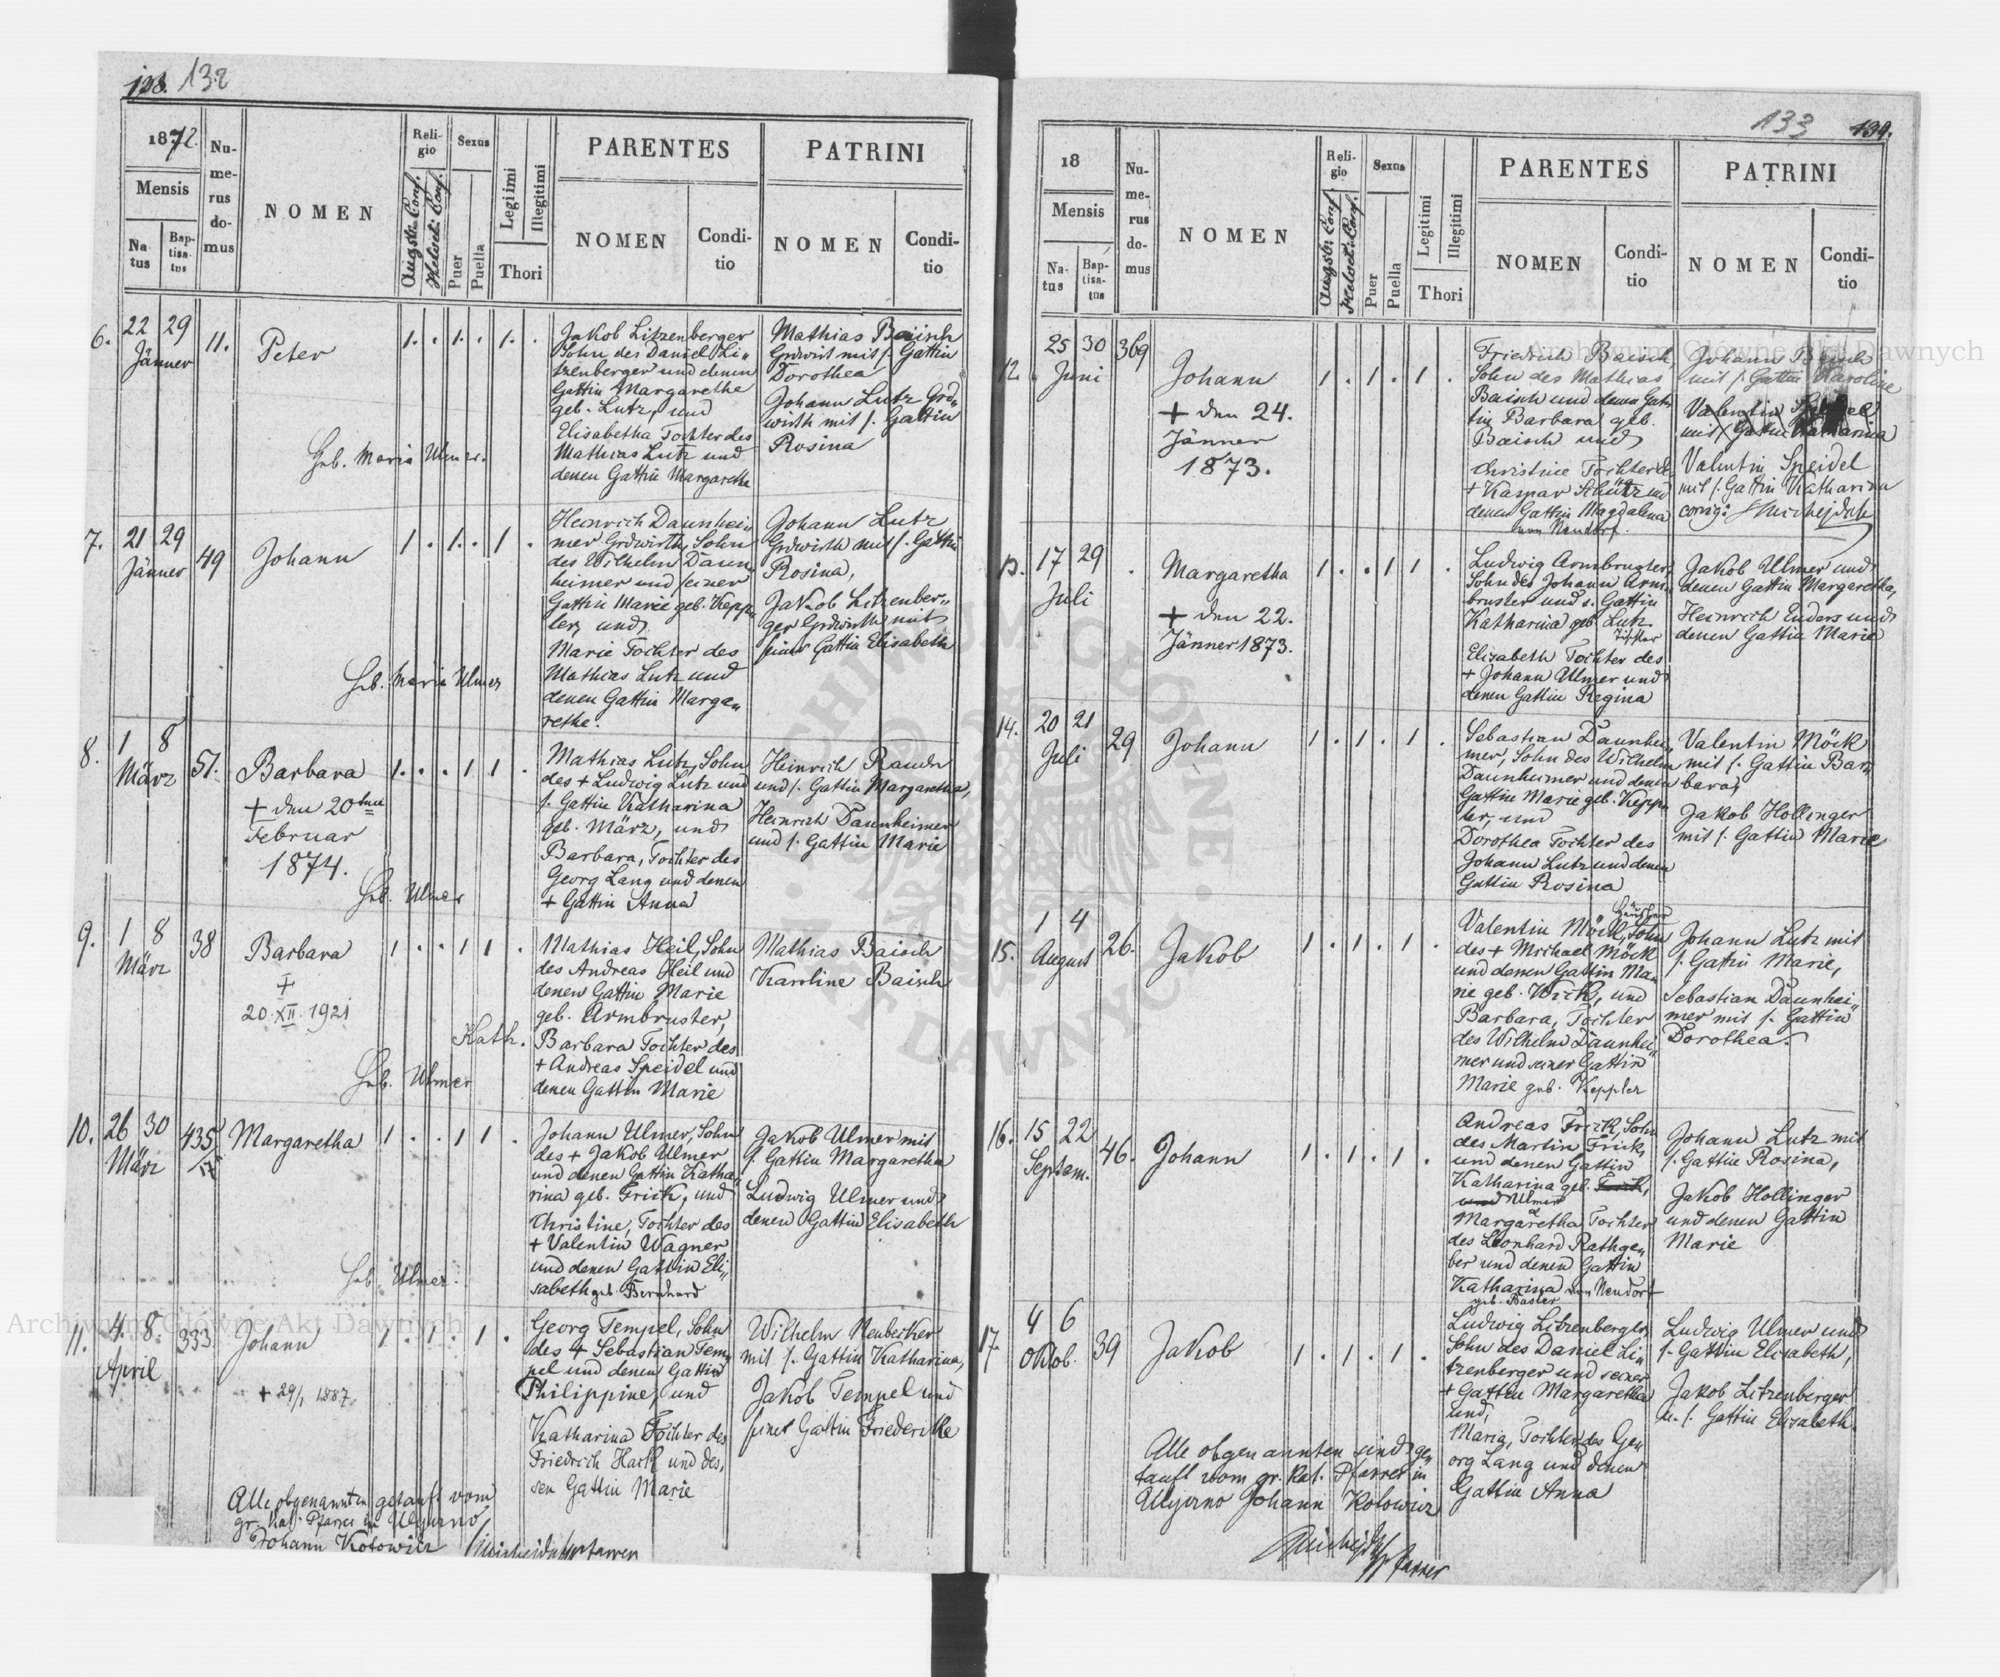 128. 132
1872.
Mensis
Na-
tus
Bap-
tisa-
tus
Nu-
me-
rus
do-
mus
NOMEN
Reli-
gio
Augsb. Conf.
Helvet. Conf.
Sexus
Puer
Puella
Legitimi
Illegitimi
Thori
PARENTES
NOMEN
Condi-
tio
PATRINI
NOMEN
Condi-
tio
6. 22 29 11. Peter 1. . 1. . 1. .
Jänner
Jakob Litzenberger
Sohn des Daniel Li„
tzenberger und denen
Gattin Margarethe
geb. Lutz, und
Elisabetha Tochter des
Mathias Lutz und
denen Gattin Margaretha
Mathias Baisch
Grdwirt mit s. Gattin
Dorothea
Johann Lutz Grd„
wirth mit s. Gattin
Rosina
Heb. Maria Ulmer.
7. 21 29 49 Johann 1 . 1. . 1 .
Jänner
Heinrich Daunhei„
mer Grdwirth, Sohn
des Wilhelm Daun„
heimer und seiner
Gattin Marie geb. Kepp„
ler, und
Marie Tochter des
Mathias Lutz und
denen Gattin Marga„
rethe.
Johann Lutz
Grdwirth mit s. Gattin
Rosina,
Jakob Litzenber„
ger Grdwirth mit
seiner Gattin Elisabeth
Heb. Maria Ulmer
8. 1 8 51. Barbara 1. . . 1 1 .
März
+ den 20ten
Februar
1874.
Mathias Lutz, Sohn
des + Ludwig Lutz und
s. Gattin Katharina
geb. März, und
Barbara, Tochter des
Georg Lang und denen
+ Gattin Anna
Heinrich Rauch
und s. Gattin Margaretha,
Heinrich Daunheimer
und s. Gattin Marie
Heb. Ulmer
9. 1 8 38 Barbara 1 . . 1 1 .
März
+
20.XII.1921
Mathias Heil, Sohn
des Andreas Heil und
denen Gattin Marie
geb. Armbruster,
Kath. Barbara Tochter des
+ Andreas Speidel und
denen Gattin Marie
Mathias Baisch
Karoline Baisch
Heb. Ulmer
10. 26 30 435/17 Margaretha 1 . . 1 1 .
März
Johann Ulmer, Sohn
des + Jakob Ulmer
und denen Gattin Katha„
rina geb. Frick, und
Christine, Tochter des
+ Valentin Wagner
und denen Gattin Eli„
sabeth geb. Bernhard
Jakob Ulmer mit
s. Gattin Margaretha
Ludwig Ulmer und
denen Gattin Elisabeth
Heb. Ulmer.
11. 4. 8. 333. Johann 1 . 1 . 1 .
April
+ 29/1 1887.
Georg Tempel, Sohn
des + Sebastian Tem„
pel und denen Gattin
Philippine, und
Katharina Tochter des
Friedrich Hack und des„
sen Gattin Marie
Wilhelm Neubecker
mit s. Gattin Katharina,
Jakob Tempel und
seiner Gattin Friedericke
Alle obgenannten getauft vom
gr. Kat. Pfarrer in Ugerno,
Johann Kotowicz
Pfarrer
133 139.
18
Mensis
Na-
tus
Bap-
tisa-
tus
Nu-
me-
rus
do-
mus
NOMEN
Reli-
gio
Augsb. Conf.
Helvet. Conf.
Sexus
Puer
Puella
Legitimi
Illegitimi
Thori
PARENTES
NOMEN
Condi-
tio
PATRINI
NOMEN
Condi-
tio
12. 25 30 369 Johann 1 . 1 . 1 .
Juni
+ den 24.
Jänner
1873.
Friedrich Baisch,
Sohn des Mathias
Baisch und denen Gat„
tin Barbara geb.
Baisch und
Christine Tochter d.
+ Kaspar Schütz und
denen Gattin Magdalena
vom Neudorf.
Johann Baisch
mit s. Gattin Karoline
Valentin Speidel
mit s. Gattin Katharina
Valentin Speidel
mit s. Gattin Katharina
corrig:
13. 17 29 . Margaretha 1 . . 1 1 .
Juli
+ den 22.
Jänner 1873.
Ludwig Armbruster,
Sohn des Johann Arm„
bruster und s. Gattin
Katharina geb. Lutz
Elisabeth Tochter des
+ Johann Ulmer und
denen Gattin Regina
Jakob Ulmer und
denen Gattin Margaretha,
Heinrich Enders und
denen Gattin Marie
14. 20 21 29 Johann 1 . 1 . 1 .
Juli
Sebastian Daunhei„
mer, Sohn des Wilhelm
Daunheimer und denen
Gattin Marie geb. Kepp„
ler, und
Dorothea Tochter des
Johann Lutz und denen
Gattin Rosina
Valentin Möck
mit s. Gattin Bar„
bara,
Jakob Hollinger
mit s. Gattin Marie
15. 1 4 26. Jakob 1 . 1 . 1 .
August
Valentin Möck, Sohn
des + Michael Möck
und denen Gattin Ma„
rie geb. Wick, und
Barbara, Tochter
des Wilhelm Daunhei„
mer und seiner Gattin
Marie geb. Keppler
Johann Lutz mit
s. Gattin Marie,
Sebastian Daunhei„
mer mit s. Gattin
Dorothea.
16. 15 22 46. Johann 1 . 1 . 1 .
Septem.
Andreas Frick, Sohn
des Martin Frick,
und denen Gattin
Katharina geb. Frick,
und Ulmer
Margaretha Tochter
des Leonhard Rathge„
ber und denen Gattin
Katharina von Neudorf
geb. Basler
Johann Lutz mit
s. Gattin Rosina,
Jakob Hollinger
und denen Gattin
Marie
17. 4 6 39 Jakob 1 . 1 . 1 .
Oktob.
Ludwig Litzenberger,
Sohn des Daniel Li„
tzenberger und seiner
+ Gattin Margaretha
und,
Maria, Tochter des Ge„
org Lang und denen
Gattin Anna
Ludwig Ulmer und
s. Gattin Elisabeth,
Jakob Litzenberger
u. s. Gattin Elisabeth.
Alle obgenannten sind ge„
tauft vom gr. Kat. Pfarrer in
Ugerno Johann Kotowicz
Pfarrer
Archiwum Główne Akt Dawnych
Archiwum Główne Akt Dawnych
ARCHIWUM GŁÓWNE AKT DAWNYCH